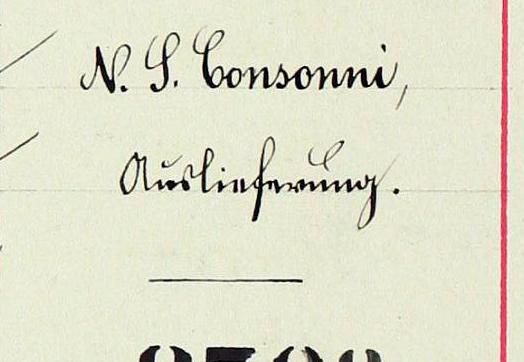 N. S. Consonni,
Auslieferung.